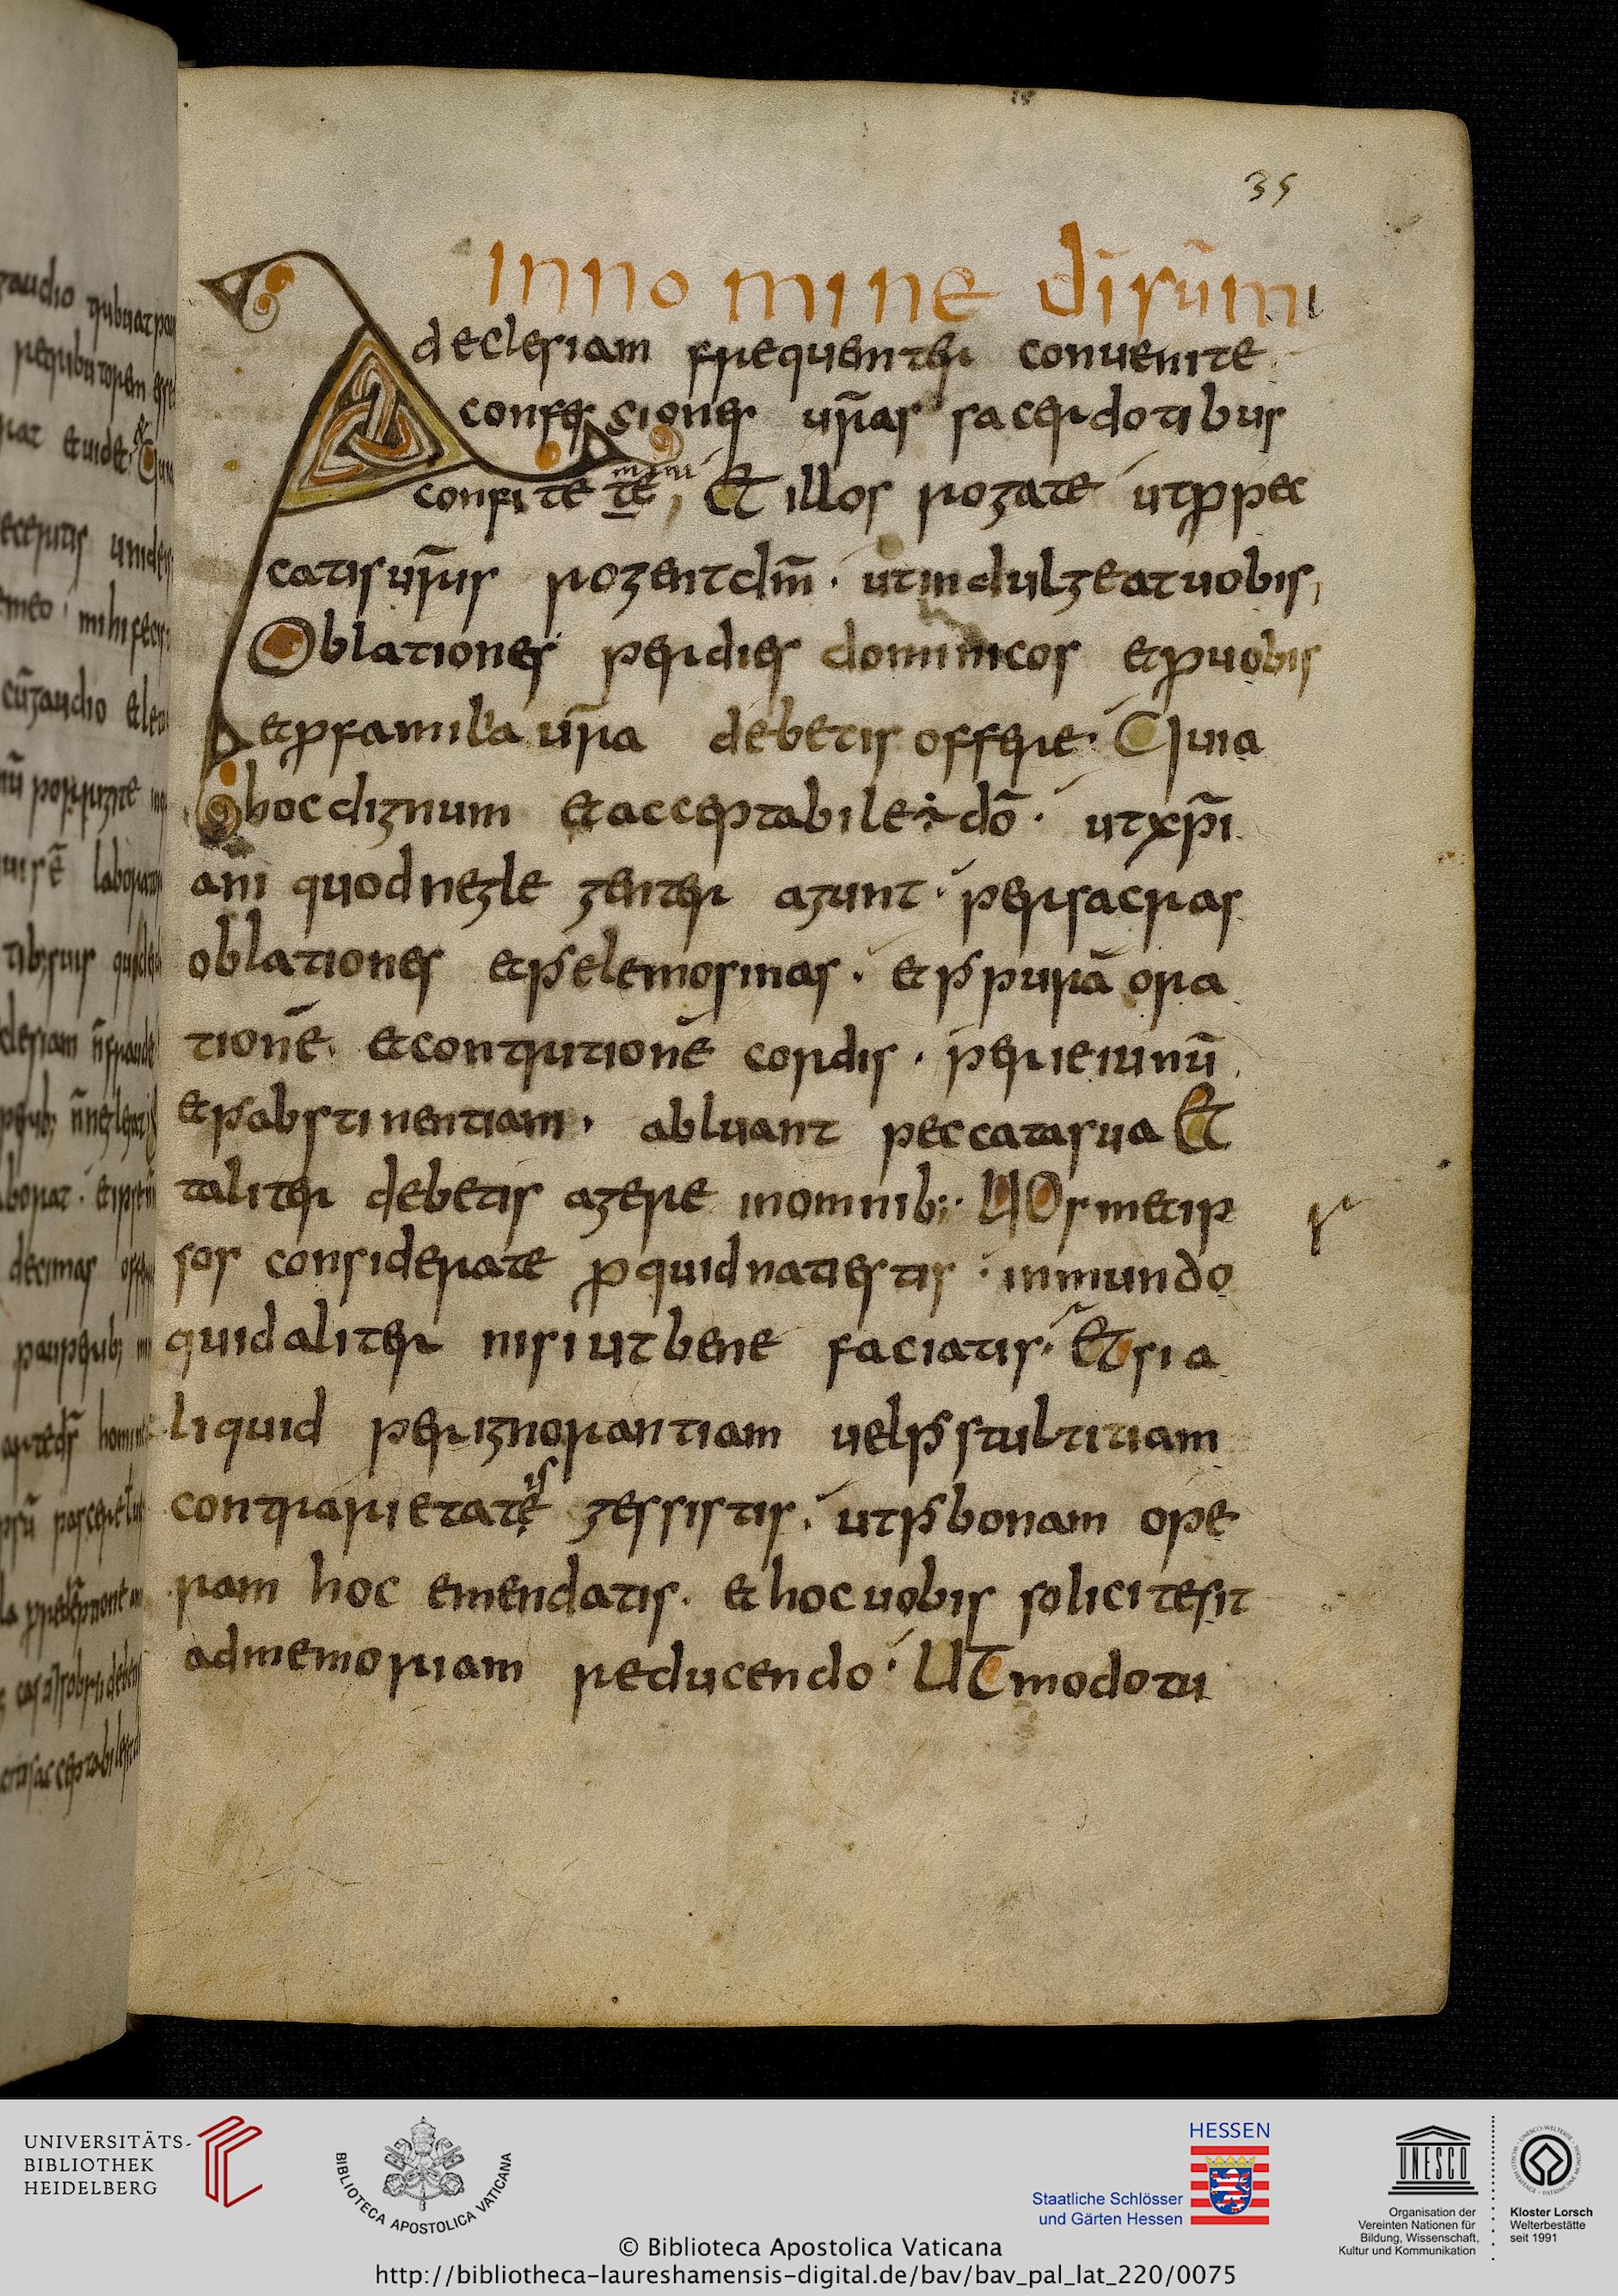 35
In nomine dn̄i sūmi
Ad eclesiam frequenter conuenite
confessiones ur̄as sacerdotibus
confitete Et illos rogate ut ꝓ pec
catis ur̄is rogent dn̄m · ut indulgeat uobis,
Oblationes per dies dominicos et ꝓ uobis
et ꝓ familia ur̄a debetis offerre · Quia
hoc dignum et acceptabile ÷ dō · ut xp̄i
ani quod negle genter agunt · per sacras
oblationes et ꝑ elemosinas · et ꝑ purā ora
tionē · et contritionē cordis · per ieiunū
et ꝑ abstinentiam · abluant peccata sua Et
taliter debetis agere in omnib; · UOs metip
sos considerate ꝓ quid nati estis · in mundo
quid aliter nisi ut bene faciatis · Et si a
liquid per ignorantiam uel ꝑ stultitiam
contrarietatē gessistis · ut ꝑ bonam ope
ram hoc emendatis · et hoc uobis solicite sit
ad memoriam reducendo · UT modo tu
UNIVERSITÄTS-
BIBLIOTHEK
HEIDELBERG
BIBLIOTECA APOSTOLICA VATICANA
HESSEN
Staatliche Schlösser
und Gärten Hessen
UNESCO
Organisation der
Vereinten Nationen für
Bildung, Wissenschaft,
Kultur und Kommunikation
Kloster Lorsch
Welterbestätte
seit 1991
© Biblioteca Apostolica Vaticana
http://bibliotheca-laureshamensis-digital.de/bav/bav_pal_lat_220/0075